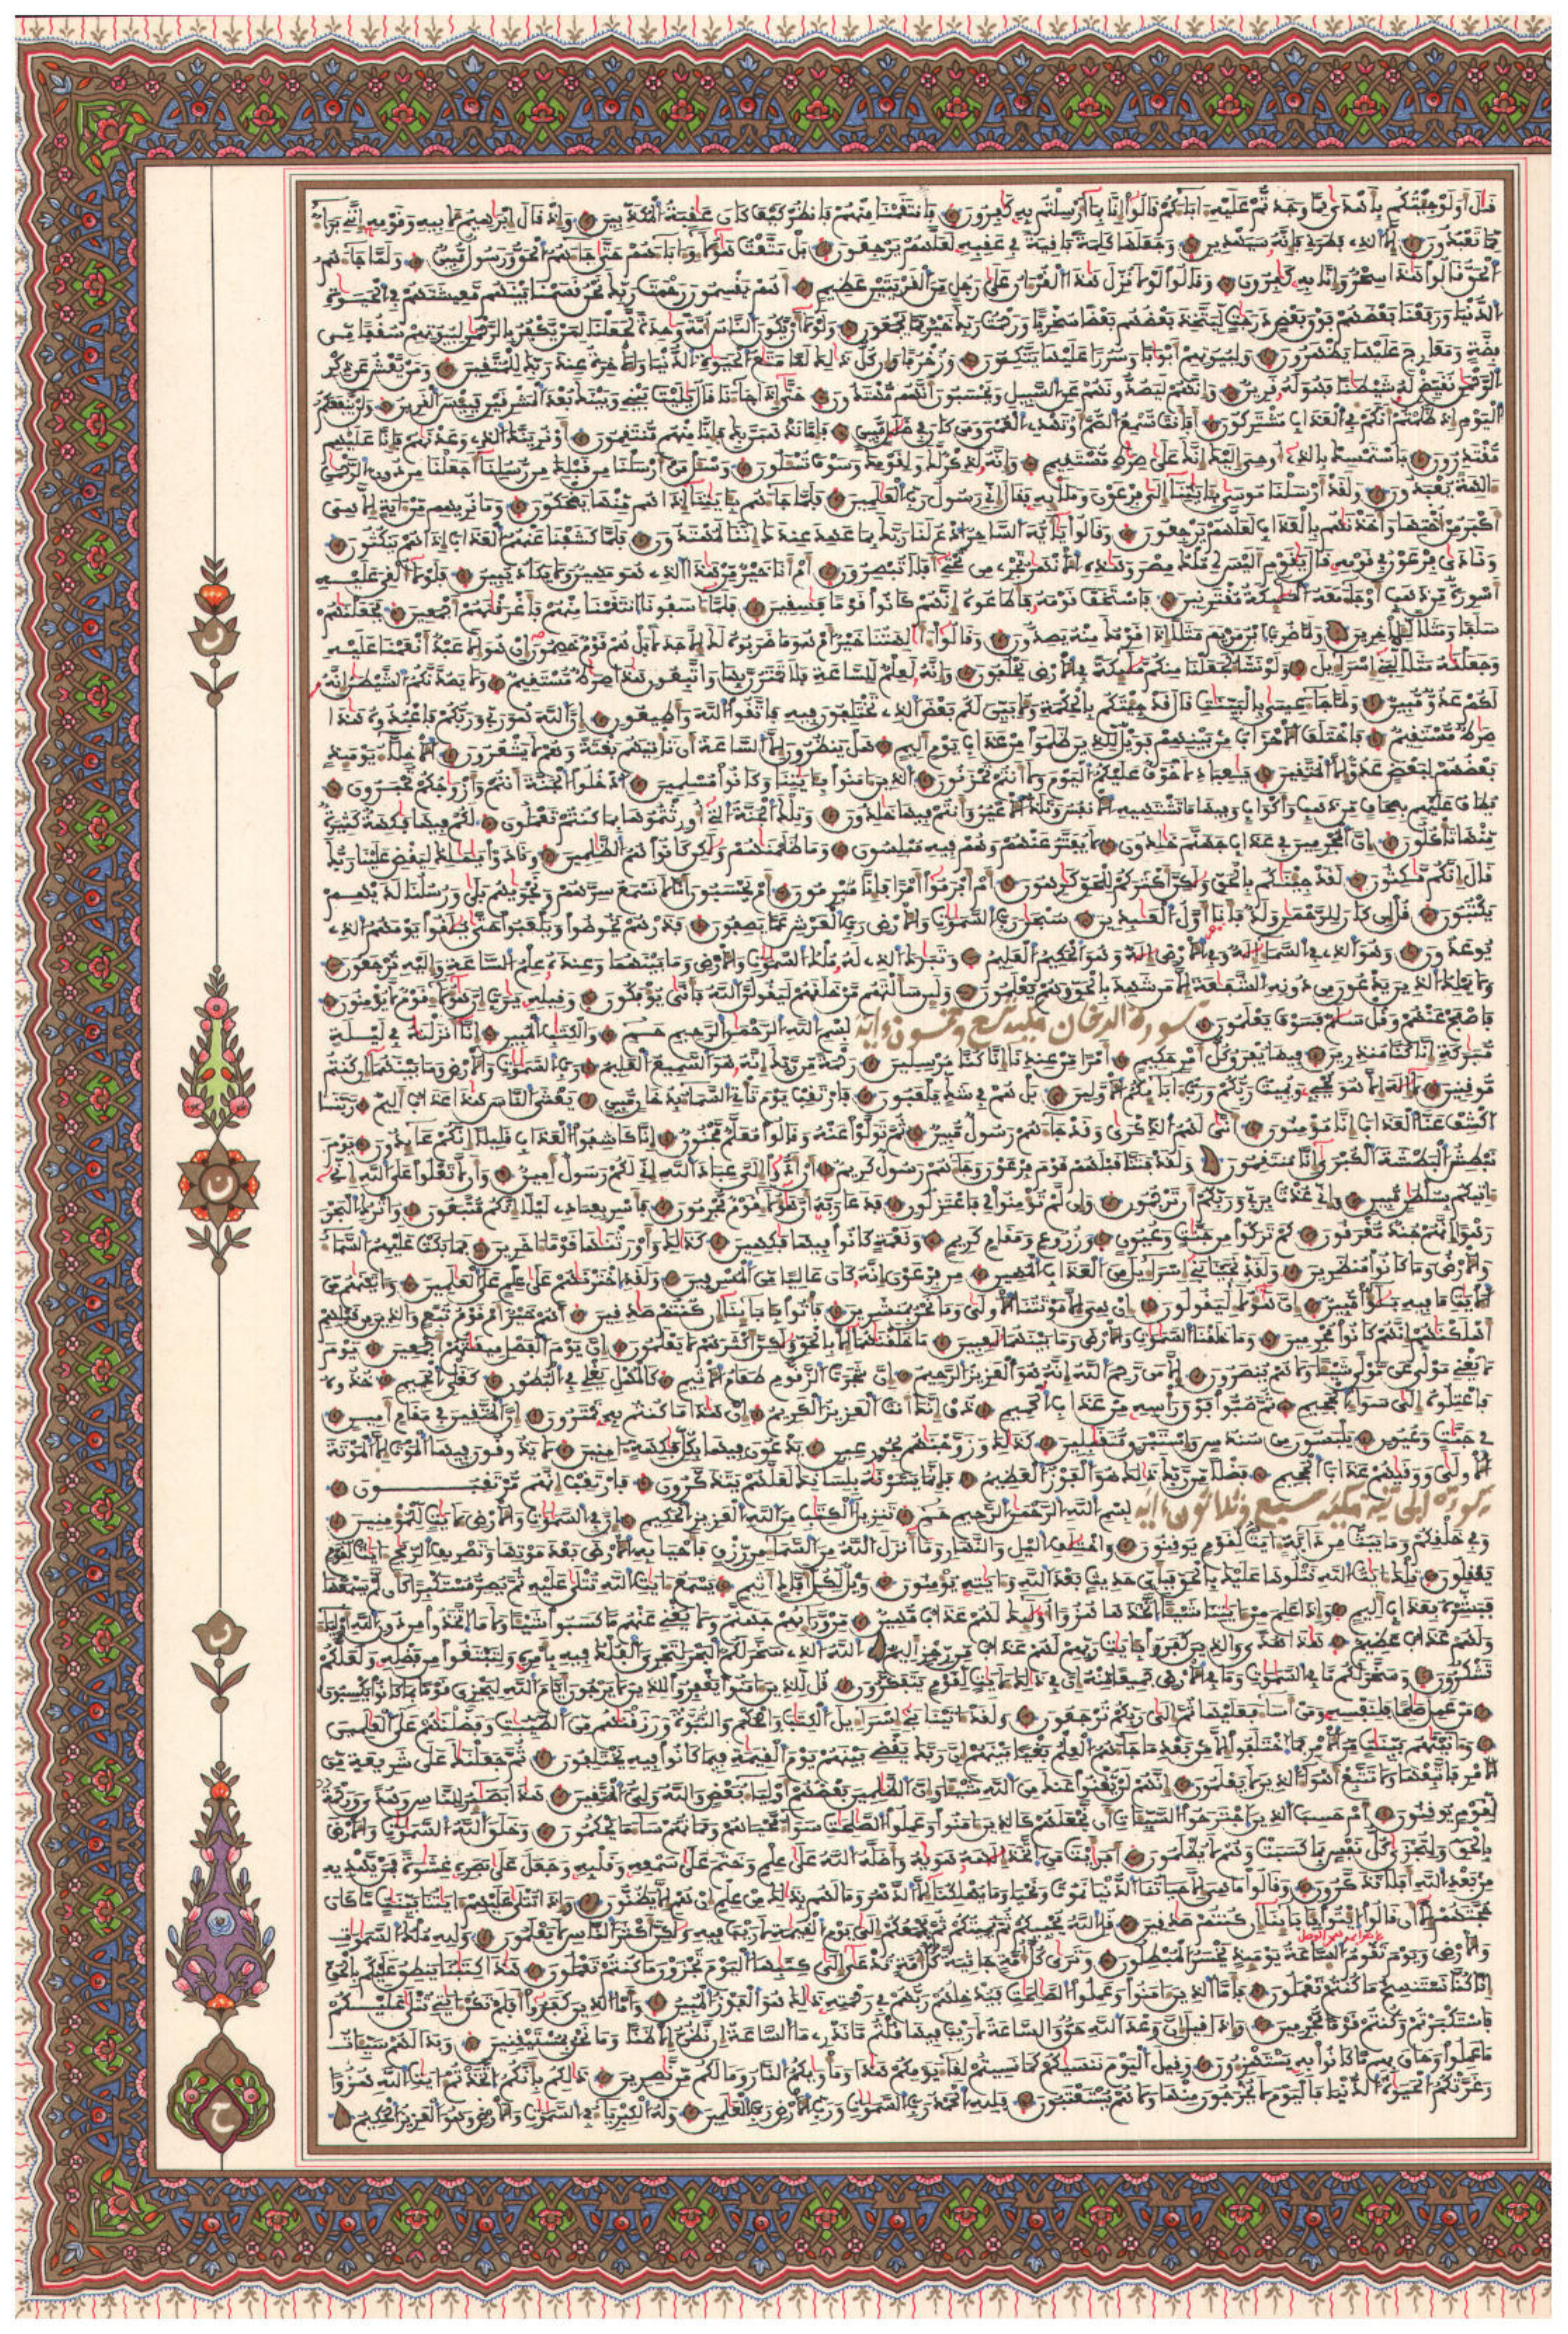 قل أولو جئتكم بأهدى مما وجدتم عليه ءاباءكم قالوا إنا بما أرسلتم به كفرون فانتقمنا منهم فانظر كيف كان عقبة المكذبين وإذ قال إبرهيم لأبيه وقومه إنني براء
مما تعبدون إلا الذى فطرنى فإنه سيهدين وجعلها كلمة باقية فى عقبه لعلهم يرجعون بل متعت هؤلاء وءاباءهم حتى جاءهم الحق ورسول مبين ولما جاءهم
الحق قالوا هذا سحر وإنا به كفرون وقالوا لولا نزل هذا القرءان على رجل من القريتين عظيم أهم يقسمون رحمت ربك نحن قسمنا بينهم معيشتهم فى الحيوة
الدنيا ورفعنا بعضهم فوق بعض درجت ليتخذ بعضهم بعضا سخريا ورحمت ربك خير مما يجمعون ولولا أن يكون الناس أمة وحدة لجعلنا لمن يكفر بالرحمن لبيوتهم سقفا من
فضة ومعارج عليها يظهرون ولبيوتهم أبوابا وسررا عليها يتكئون وزخرفا وإن كل ذلك لما متع الحيوة الدنيا والاخرة عند ربك للمتقين ومن يعش عن ذكر
الرحمن نقيض له شيطنا فهو له قرين وإنهم ليصدونهم عن السبيل ويحسبون أنهم مهتدون حتى إذا جاءنا قال يليت بينى وبينك بعد المشرقين فبيس القرين ولن ينفعكم
اليوم إذ ظلمتم أنكم فى العذاب مشتركون أفأنت تسمع الصم أو تهدى العمى ومن كان فى ضلل مبين فإما نذهبن بك فإنا منهم منتقمون أو نرينك الذى وعدنهم فإنا عليهم
مقتدرون فاستمسك بالذى أوحى إليك إنك على صرط مستقيم وإنه لذكر لك ولقومك وسوف تسئلون وسئل من أرسلنا من قبلك من رسلنا أجعلنا من دون الرحمن
ءالهة يعبدون ولقد أرسلنا موسى بئايتنا إلى فرعون وملإيه فقال إنى رسول رب العلمين فلما جاءهم بئايتنا إذا هم منها يضحكون وما نريهم من ءاية إلا هى
أكبر من أختها وأخذنهم بالعذاب لعلهم يرجعون وقالوا يأيه الساحر ادع لنا ربك بما عهد عندك إننا لمهتدون فلما كشفنا عنهم العذاب إذا هم ينكثون
ونادى فرعون فى قومه قال يقوم أليس لى ملك مصر وهذه الانهر تجرى من تحتى أفلا تبصرون أم أنا خير من هذا الذى هو مهين ولا يكاد يبين فلولا ألقى عليه
أسورة من ذهب أو جاء معه الملئكة مقترنين فاستخف قومه فأطاعوه إنهم كانوا قوما فسقين فلما ءاسفونا انتقمنا منهم فأغرقنهم أجمعين فجعلنهم
سلفا ومثلا للاخرين ولما ضرب ابن مريم مثلا إذا قومك منه يصدون وقالوا ءالهتنا خير أم هو ما ضربوه لك إلا جدلا بل هم قوم خصمون إن هو إلا عبد أنعمنا عليه
وجعلنه مثلا لبنى إسراءيل ولو نشاء لجعلنا منكم ملئكة فى الارض يخلفون وإنه لعلم للساعة فلا تمترن بها واتبعون هذا صرط مستقيم ولا يصدنكم الشيطن إنه
لكم عدو مبين ولما جاء عيسى بالبينت قال قد جئتكم بالحكمة ولأبين لكم بعض الذى تختلفون فيه فاتقوا الله وأطيعون إن الله هو ربى وربكم فاعبدوه هذا
صرط مستقيم فاختلف الاحزاب من بينهم فويل للذين ظلموا من عذاب يوم أليم هل ينظرون إلا الساعة أن تأتيهم بغتة وهم لا يشعرون الاخلاء يومئذ
بعضهم لبعض عدو إلا المتقين يعبادى لا خوف عليكم اليوم ولا أنتم تحزنون الذين ءامنوا بئايتنا وكانوا مسلمين ادخلوا الجنة أنتم وأزواجكم تحبرون
يطاف عليهم بصحاف من ذهب وأكواب وفيها ما تشتهيه الانفس وتلذ الاعين وأنتم فيها خلدون وتلك الجنة التى أورثتموها بما كنتم تعملون لكم فيها فكهة كثيرة
منها تأكلون إن المجرمين فى عذاب جهنم خلدون لا يفتر عنهم وهم فيه مبلسون وما ظلمنهم ولكن كانوا هم الظلمين ونادوا يملك ليقض علينا ربك
قال إنكم مكثون لقد جئنكم بالحق ولكن أكثركم للحق كرهون أم أبرموا أمرا فإنا مبرمون أم يحسبون أنا لا نسمع سرهم ونجويهم بلى ورسلنا لديهم
يكتبون قل إن كان للرحمن ولد فأنا أول العبدين سبحن رب السموت والارض رب العرش عما يصفون فذرهم يخوضوا ويلعبوا حتى يلقوا يومهم الذى
يوعدون وهو الذى فى السماء اله وفى الارض إله وهو الحكيم العليم وتبرك الذى له ملك السموت والارض وما بينهما وعنده علم الساعة وإليه ترجعون
ولا يملك الذين يدعون من دونه الشفعة إلا من شهد بالحق وهم يعلمون ولئن سألتهم من خلقهم ليقولن الله فأنى يؤفكون وقيله يرب إن هؤلاء قوم لا يومنون
فاصفح عنهم وقل سلم فسوف تعلمون سورة الدخان مكية تسع وخمسون ءاية بسم الله الرحمن الرحيم حم والكتب المبين إنا أنزلنه فى ليلة
مبركة إنا كنا منذرين فيها يفرق كل أمر حكيم أمرا من عندنا إنا كنا مرسلين رحمة من ربك إنه هو السميع العليم رب السموت والارض وما بينهما إن كنتم
موقنين لا إله إلا هو يحى ويميت ربكم ورب ءابائكم الاولين بل هم فى شك يلعبون فارتقب يوم تأتى السماء بدخان مبين يغشى الناس هذا عذاب أليم ربنا
اكشف عنا العذاب إنا مومنون أنى لهم الذكرى وقد جاءهم رسول مبين ثم تولوا عنه وقالوا معلم مجنون إنا كاشفوا العذاب قليلا إنكم عائدون يوم
نبطش البطشة الكبرى إنا منتقمون ولقد فتنا قبلهم قوم فرعون وجاءهم رسول كريم أن ادوا إلى عباد الله إنى لكم رسول أمين وأن لا تعلوا على الله إنى
ءاتيكم بسلطن مبين وإنى عذت بربى وربكم أن ترجمون وإن لم تومنوا لى فاعتزلون فدعا ربه أن هؤلاء قوم مجرمون فاسر بعبادى ليلا إنكم متبعون واترك البحر
رهوا إنهم جند مغرقون كم تركوا من جنت وعيون وزروع ومقام كريم ونعمة كانوا فيها فكهين كذلك وأورثنها قوما ءاخرين فما بكت عليهم السماء
والارض وما كانوا منظرين ولقد نجينا بنى إسراءيل من العذاب المهين من فرعون إنه كان عاليا من المسرفين ولقد اخترنهم على علم على العلمين وءاتينهم من
الايت ما فيه بلؤا مبين إن هؤلاء ليقولون إن هى إلا موتتنا الاولى وما نحن بمنشرين فأتوا بئابائنا إن كنتم صدقين أهم خير أم قوم تبع والذين من قبلهم
أهلكنهم إنهم كانوا مجرمين وما خلقنا السموت والارض وما بينهما لعبين ما خلقنهما إلا بالحق ولكن أكثرهم لا يعلمون إن يوم الفصل ميقتهم أجمعين يوم
لا يغنى مولى عن مولى شيئا ولا هم ينصرون إلا من رحم الله إنه هو العزيز الرحيم إن شجرت الزقوم طعام الاثيم كالمهل تغلى فى البطون كغلى الحميم خذوه
فاعتلوه إلى سواء الجحيم ثم صبوا فوق رأسه من عذاب الحميم ذق إنك أنت العزيز الكريم إن هذا ما كنتم به تمترون إن المتقين فى مقام أمين
فى جنت وعيون يلبسون من سندس وإستبرق متقبلين كذلك وزوجنهم بحور عين يدعون فيها بكل فكهة ءامنين لا يذوقون فيها الموت إلا الموتة
الاولى ووقيهم عذاب الجحيم فضلا من ربك ذلك هو الفوز العظيم فإنما يسرنه بلسانك لعلهم يتذكرون فارتقب إنهم مرتقبون
سورة الجاثية مكية سبع وثلاثون ءاية بسم الله الرحمن الرحيم حم تنزيل الكتب من الله العزيز الحكيم إن فى السموت والارض لأيت للمومنين
وفى خلقكم وما يبث من دابة ءايت لقوم يوقنون واختلف اليل والنهار وما أنزل الله من السماء من رزق فأحيا به الارض بعد موتها وتصريف الريح ءايت لقوم
يعقلون تلك ءايت الله نتلوها عليك بالحق فبأى حديث بعد الله وءايته يومنون ويل لكل أفاك أثيم يسمع ءايت الله تتلى عليه ثم يصر مستكبرا كأن لم يسمعها
فبشره بعذاب أليم وإذا علم من ءايتنا شيئا اتخذها هزؤا أولئك لهم عذاب مهين من ورائهم جهنم ولا يغنى عنهم ما كسبوا شيئا ولا ما اتخذوا من دون الله أولياء
ولهم عذاب عظيم هذا هدى والذين كفروا بئايت ربهم لهم عذاب من رجز أليم الله الذى سخر لكم البحر لتجرى الفلك فيه بأمره ولتبتغوا من فضله ولعلكم
تشكرون وسخر لكم ما فى السموت وما فى الارض جميعا منه إن فى ذلك لأيت لقوم يتفكرون قل للذين ءامنوا يغفروا للذين لا يرجون أيام الله ليجزى قوما بما كانوا يكسبون
من عمل صلحا فلنفسه ومن أساء فعليها ثم إلى ربكم ترجعون ولقد ءاتينا بنى إسراءيل الكتب والحكم والنبوءة ورزقنهم من الطيبت وفضلنهم على العلمين
وءاتينهم بينت من الامر فما اختلفوا إلا من بعد ما جاءهم العلم بغيا بينهم إن ربك يقضى بينهم يوم القيمة فيما كانوا فيه يختلفون ثم جعلنك على شريعة من
الامر فاتبعها ولا تتبع أهواء الذين لا يعلمون إنهم لن يغنوا عنك من الله شيئا وإن الظلمين بعضهم أولياء بعض والله ولى المتقين هذا بصئر للناس وهدى ورحمة
لقوم يوقنون أم حسب الذين اجترحوا السيئات أن نجعلهم كالذين ءامنوا وعملوا الصلحت سواء محياهم ومماتهم ساء ما يحكمون وخلق الله السموت والارض
بالحق ولتجزى كل نفس بما كسبت وهم لا يظلمون أفرايت من اتخذ إلهه هويه وأضله الله على علم وختم على سمعه وقلبه وجعل على بصره غشوة فمن يهديه
من بعد الله أفلا تذكرون وقالوا ما هى إلا حياتنا الدنيا نموت ونحيا وما يهلكنا إلا الدهر وما لهم بذلك من علم إن هم إلا يظنون وإذا تتلى عليهم ءايتنا بينت ما كان
حجتهم إلا أن قالوا ايتوا بئابائنا إن كنتم صدقين قل الله يحييكم ثم يميتكم ثم يجمعكم إلى يوم القيمة لا ريب فيه ولكن أكثر الناس لا يعلمون ولله ملك السموت
والارض ويوم تقوم الساعة يومئذ يخسر المبطلون وترى كل أمة جاثية كل أمة تدعى إلى كتبها اليوم تجزون ما كنتم تعملون هذا كتبنا ينطق عليكم بالحق
إنا كنا نستنسخ ما كنتم تعملون فأما الذين ءامنوا وعملوا الصلحت فيدخلهم ربهم فى رحمته ذلك هو الفوز المبين وأما الذين كفروا أفلم تكن ءايتى تتلى عليكم
فاستكبرتم وكنتم قوما مجرمين وإذا قيل إن وعد الله حق والساعة لا ريب فيها قلتم ما ندرى ما الساعة إن نظن إلا ظنا وما نحن بمستيقنين وبدا لهم سيئات
ما عملوا وحاق بهم ما كانوا به يستهزءون وقيل اليوم ننسيكم كما نسيتم لقاء يومكم هذا ومأويكم النار وما لكم من نصرين ذلكم بأنكم اتخذتم ءايت الله هزؤا
وغرتكم الحيوة الدنيا فاليوم لا يخرجون منها ولا هم يستعتبون فلله الحمد رب السموت ورب الارض رب العلمين وله الكبرياء فى السموت والارض وهو العزيز الحكيم
ن
ن
ن
ح